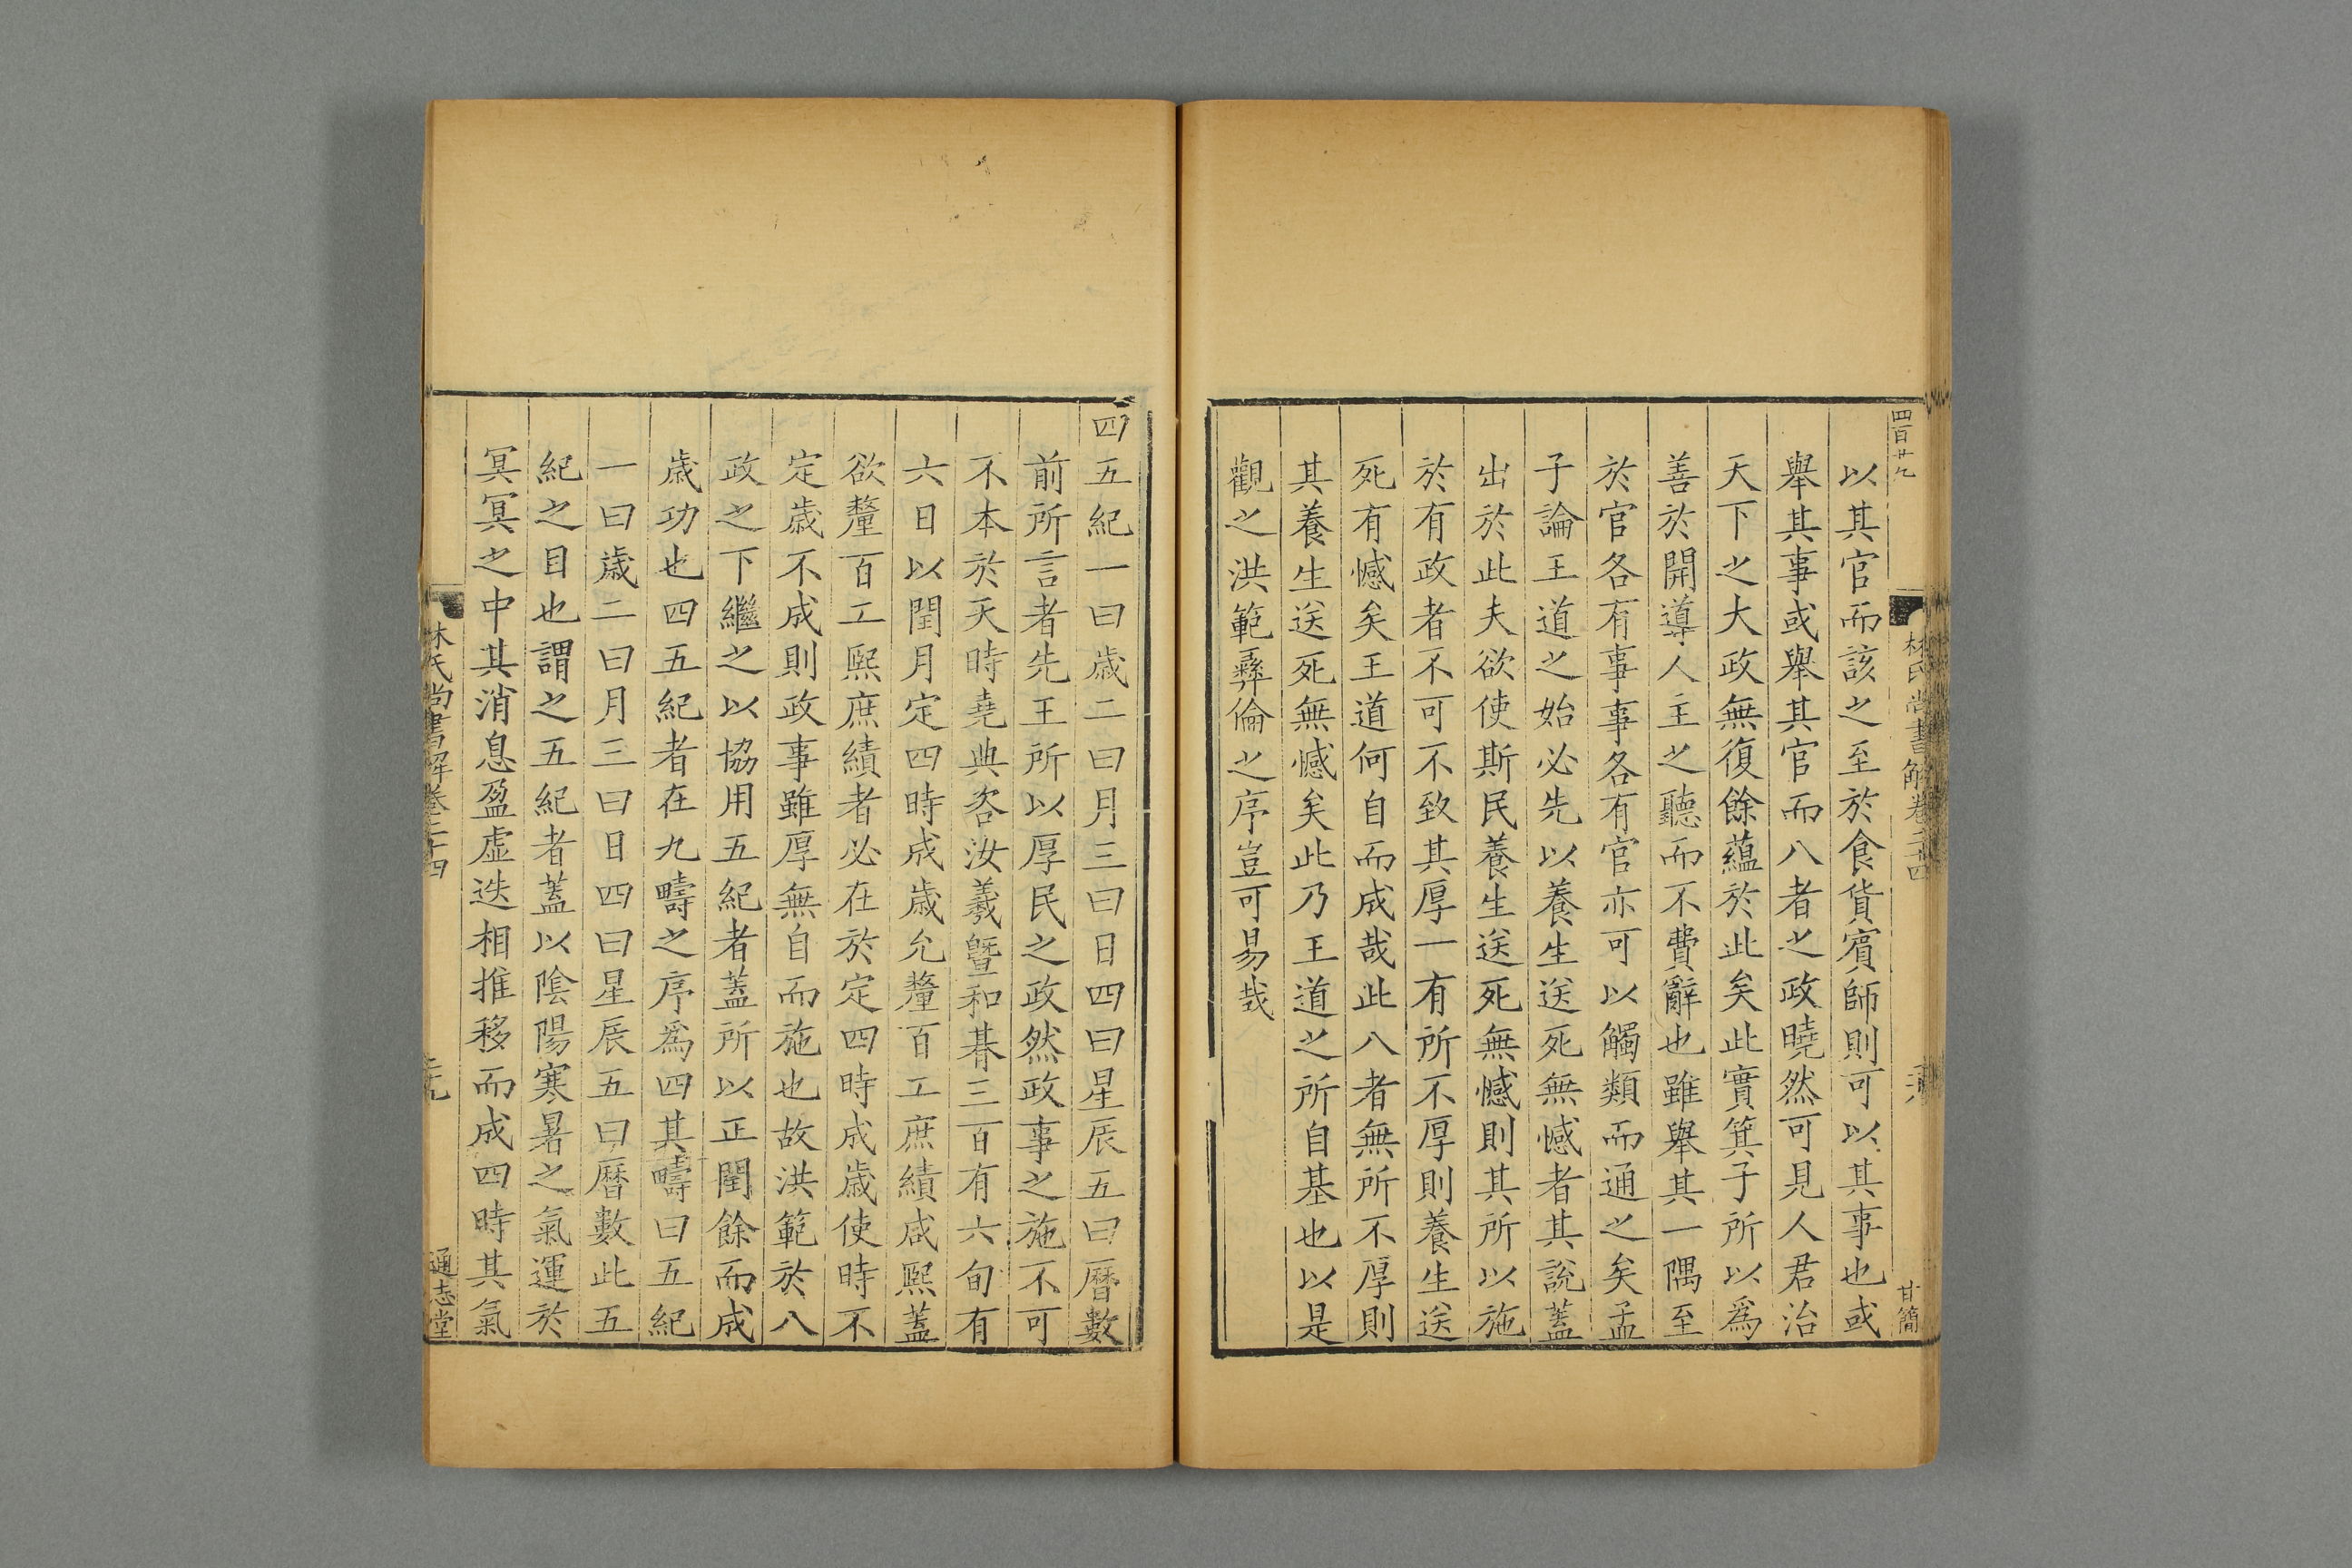 四百廿九
林氏尚書解卷二十四
甘簡
以其官而該之至於食貨賓師則可以其事也或
舉其事或舉其官而八者之政曉然可見人君治
天下之大政無復餘蘊於此矣此實箕子所以爲
善於開導人主之聽而不費辭也雖舉其一隅至
於官各有事事各有官亦可以觸類而通之矣孟
子論王道之始必先以養生送死無憾者其說蓋
出於此夫欲使斯民養生送死無憾則其所以施
於有政者不可不致其厚一有所不厚則養生送
死有憾矣王道何自而成哉此八者無所不厚則
其養生送死無憾矣此乃王道之所自基也以是
觀之洪範彞倫之序豈可易哉
四五紀一曰歲二曰月三曰日四曰星辰五曰曆數
前所言者先王所以厚民之政然政事之施不可
不本於天時堯典咨汝羲曁和朞三百有六旬有
六日以閏月定四時成歲允釐百工庶績咸熙蓋
欲釐百工熙庶績者必在於定四時成歲使時不
定歲不成則政事雖厚無自而施也故洪範於八
政之下繼之以協用五紀者蓋所以正閏餘而成
歲功也四五紀者在九疇之序爲四其疇曰五紀
一曰歲二曰月三曰日四曰星辰五曰曆數此五
紀之目也謂之五紀者蓋以陰陽寒暑之氣運於
冥冥之中其消息盈虛迭相推移而成四時其氣
林氏尚書解卷二十四
通志堂